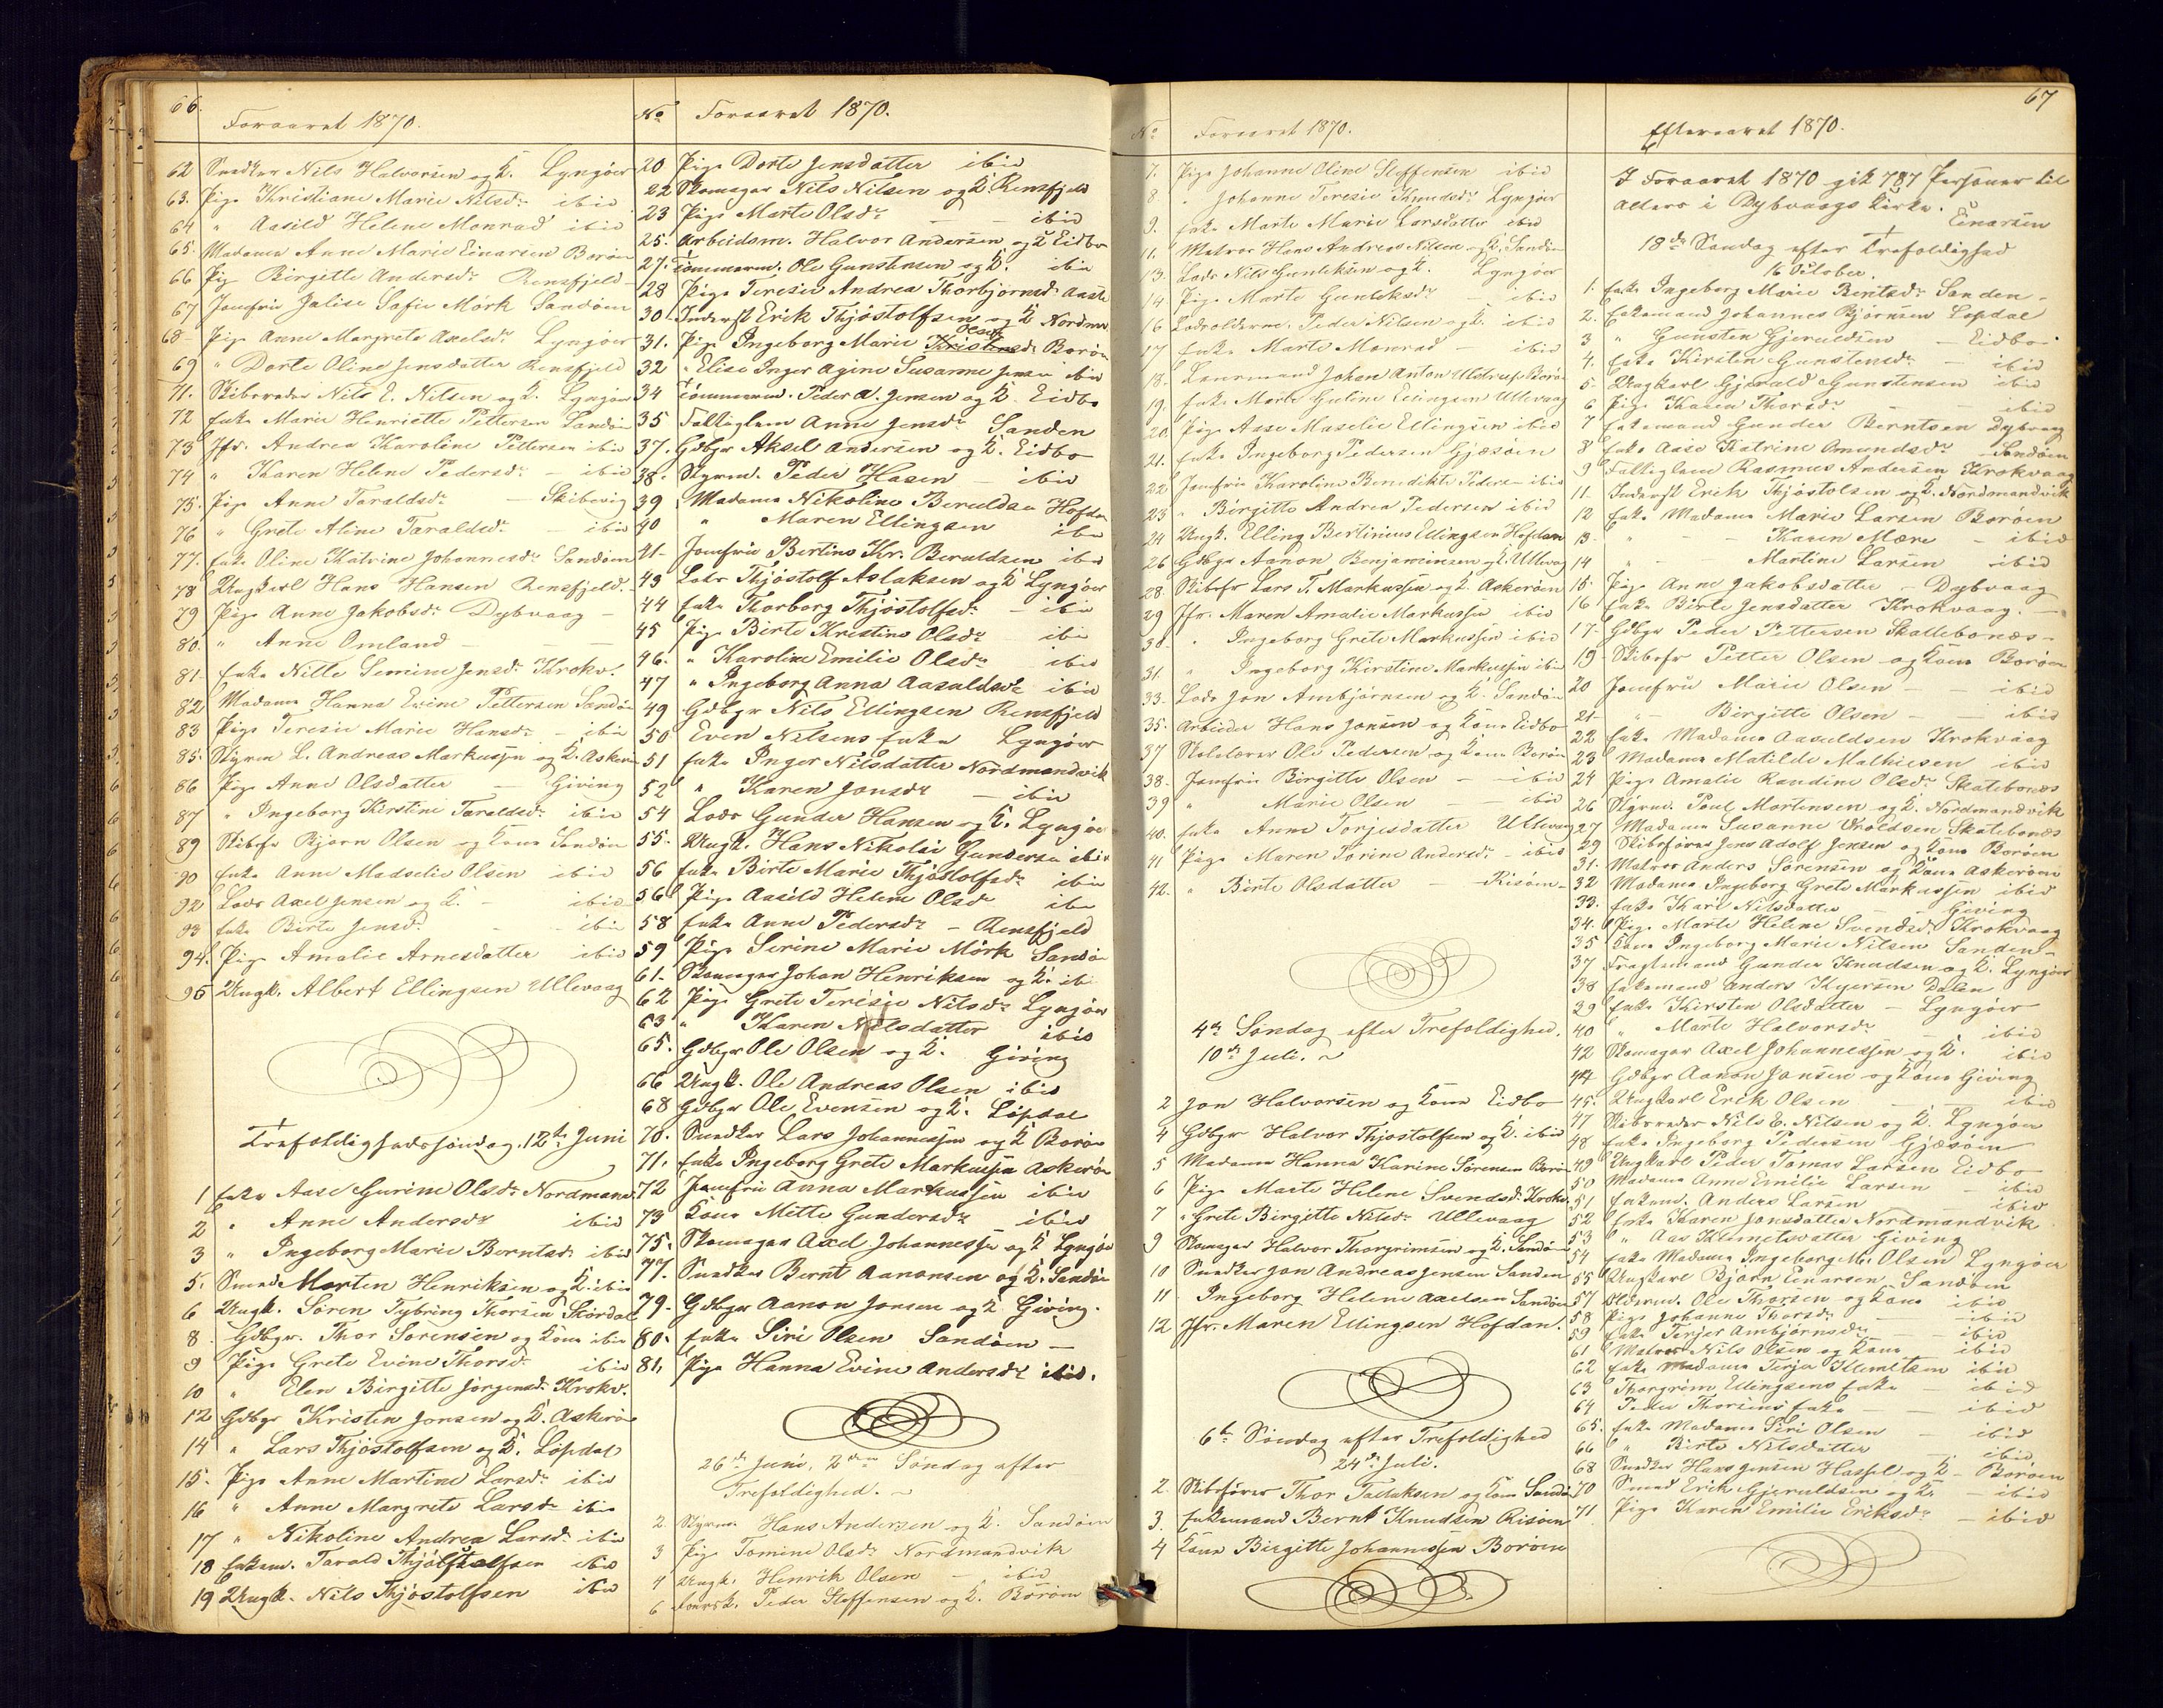 66.
Foraaret 1870.
62 Snedker Nils Halvorsen og K. Lyngöer
63. Pige Kristiane Marie Nilsdr ibid
64 " Aasild Helene Monrad ibid
65. Madame Anne Marie Einarsen Boröen
66 Pig Birgitte Andersdr Rensfjeld
67 Jomfru Jalise Safie Mörk Sandöen
68 Pige Anne Margrete Axelsdr Lyngöer
69 " Dorte Oline Jensdatter Rensfjeld
71. Skibsreder Nils E. Nilsen og K. Lyngöer
72 Enke Marie Henriette Pettersen Sandöen
73 Jfr. Andrea Karoline Pettersen ibid
74 " Karen Helene Pedersdr – ibid
75. Pige Anne Taraldsdr – Skibevig
76 " Grete Aline Taraldsdr – ibid
77. Enke Oline Katrine Johannesdr Sandöen
78 Ungkarl Hans Hansen Rensfjeld.
79 Pige Anne Jakobsdr Dybvaag –
80. " Anne Omland – – –
81 Enke Nille Semine Jensdr Krokv.
82 Madame Hanna Evine Pettersen Sandöen
83 Pige Teresie Marie Hansdr – ibid
85. Styrm L. Andreas Markussen og K. Askeröen
86 Pige Anne Olsdatter – Giving
87 " Ingeborg Kirstine Taraldsdr ibid
89 Skibsfr Bjorn Olsen og Kone Sandöen
90 Enke Anne Madselie Olsen ibid
92 Lods Axel Jensen og K. – ibid
93 Enke Birte Jensdr – – ibid
94. Pige Amalie Arnesdatter ibid
95 Ungk. Albert Ellingsen Ullevaag
Trefoldighedssöndag. 12te Juni
1 Enke Aase Gurine Olsdr Nordmandv.
2 " Anne Andersdr ibid
3 " Ingeborg Marie Berntsdr ibid
5. Smed Morten Henriksen og K. ibid
6 Ungk. Sören Tybring Thorsen Skordal
8 Gdbgr. Thor Sorensen og Kone ibid
9 Pige Grete Evine Thorsdr ibid
10 " Elen Birgitte Jörgensdr Krokv.
12 Gdbgr Kristen Jonsen og K. Askeröen
14 " Lars Thjöstolfsen og K. Löpdal
15. Pige Anne Martine Larsdr ibid
16 " Anne Margrete Larsdr ibid
17 " Nikoline Andrea Larsdr ibid
18 Enkem. Tarald Thjöstolfsen ibid
19 Ungk. Nils Thjöstolfsen ibid
No Foraaret 1870.
20 Pige Dorte Jensdatter ibid
22 Skomager Nils Nilsen og K. Rensfjeld
23 Pige Marte Olsdr – – ibid
25. Arbeidsm. Halvor Andersen og K Eidbo
27. Tömmerm. Ole Gunstensen og K. ibid
28 Pige Teresie Andrea Thorbjörnsdr Aaste
30. Inderst Erik Thjöstolfsen og K Nordmv
31. Pige Ingeborg Marie Olsdr Boröen
32 " Elise Inger Agine Susanne Jensen ibid
34 Tömmerm. Peder A. Jensen og K. Eidbo
35 Fattiglem Anne Jensdr Sanden
37. Gdbgr Aksel Andersen og K. Eidbo
38. Styrm. Peder Hasen – ibid
39 Madame Nikoline Beruldsen Hofdan
40 " Maren Ellingsen ibid
41 Jomfru Bertine Kr. Beruldsen ibid
43 Lods Thjöstolf Aslaksen og K Lyngöer
44 Enke Thorborg Thjöstolfsdr – ibid
45 Pige Birte Kristine Olsdr ibid
46. " Karoline Emilie Olsdr ibid
47 " Ingeborg Anna Aasuldsdr ibid
49 Gdbgr Nils Ellingsen Rensfjeld
50 Even Nilsens Enke Lyngöer
51 Enke Inger Nilsdatter Nordmandvik
52 " Karen Jonsdr – ibid
54 Lods Gunder Hansen og K. Lyngöer
55. Ungk. Hans Nikolai Gundersen ibid
56 Enke Birte Marie Thjöstolfsdr ibid
56 Pige Aasild Helene Olsdr ibid
58 Enke Anne Pedersdr – Rensfjeld
59 Pige Serine Marie Mörk Sandöen
61. Skomager Johan Henriksen og K. ibid
62 Pige Grete Teresie Nilsdr Lyngöer
63 " Karen Nilsdatter ibid
65. Gdbgr Ole Olsen og K. Giving
66 Ungk. Ole Andreas Olsen ibid
68 Gdbgr Ole Evensen og K. Löpdal
70. Snedker Lars Johannessen og K Boröen
71. Enke Ingeborg Grete Markussen Askeröen
72 Jomfru Anna Markussen ibid
73 Kone Mette Gundersdr – ibid
75. Skomager Axel Johannessen og K Lyngöer
77. Snedker Bernt Aanonsen og K. Sandöen
79. Gdbgr Aanon Jonsen og K. Giving.
80. Enke Siri Olsen Sandöen –
81. Pige Hanna Evine Andersdr ibid.
26de Juni, 2den Söndag efter
Trefoldighed.
2. Styrm. Hans Andersen og K. Sandöen
3 Pige Tomine Olsdr Nordmandvik
4 Ungk. Henrik Olsen – ibid
6 Peder Steffensen og K. Boröen
No Foraaret 1870.
7. Pige Johanne Oline Steffensen ibid
8. " Johanne Teresie Knudsdr Lyngöer
9. Enke Marte Marie Larsdatter ibid
11. Matros Hans Andreas Nilsen og K. Sandöen
13. Lods Nils Gunleksen og K. Lyngöer
14 Pige Marte Gunleksdr – ibid
16 Lodsolderm. Peder Nilsen og K. ibid
17 Enke Marte Monrad – ibid
18. Lensmand Johan Anton Ulstrup Boröen
19. Enke Marte Guline Ellingsen Ullevaag
20. Pige Aase Maselie Ellingsen ibid
21. Enke Ingeborg Pedersen Gjæsöen
22 Jomfru Karoline Benedikte Pedersen ibid
23 " Birgitte Andrea Pedersen ibid
24 Ungk. Elling Bertinius Ellingsen Hofdan
26 Gdbgr Aanon Benjaminsen og K. Ullevaag
28. Skibsfr Lars T. Markussen og K. Askeröen
29 Jfr. Maren Amalie Markussen ibid
30. " Ingeborg Grete Markussen ibid
31. " Ingeborg Kirstine Markussen ibid
33. Lods Jon Ambjörnsen og K. Sandöen
35. Arbeider Hans Jonsen og Kone Eidbo
37 Skolelærer Ole Pedersen og Kone Boröen
38. Jomfru Birgitte Olsen – ibid
39 " Marie Olsen – ibid
40. Enke Anne Torjesdatter Ullevaag
41 Pige Maren Torine Andersdr – ibid
42. " Birte Olsdatter – Risöen –
4de Söndag efter Trefoldighed.
10de Juli.
2 Jon Halvorsen og Kone Eidbo
4 Gdbgr Halvor Thjostolfsen og K. ibid
5 Madame Hanna Karine Sörensen Boröen
6 Pige Marte Helene Svendsdr Krokv
7 " Grete Birgitte Nilsdr Ullevaag
9 Skomager Halvor Thorgrimsen og K. Sandöen
10 Snedker Jon Andreas Jensen Sanden
11 Ingeborg Helene Axelsen Sandöen
12 Jfr. Maren Ellingsen Hofdan.
6te Söndag efter Trefoldighed
24de Juli.
2. Skibsförer Thor Taraldsen og Kone Sandöen
3. Enkemand Bernt Knudsen Risöen
4 Kone Birgitte Johannessen Boröen
67
Efteraaret 1870.
I Foraaret 1870 gik 787 Personer til
Alters i Dybvaags Kirke.
Einarsen
18de Söndag efter Trefoldighed
16 October.
1. Enke Ingeborg Marie Berntsdr Sanden –
2. Enkemand Johannes Bjornsen Lopdal
3 " Gunsten Gjeruldsen – Eidbo
4. Enke Kirsten Gunstensdr – ibid
5. Ungkarl Gjerald Gunstensen ibid
6 Pige Karen Thorsdr – ibid
7 Enkemand Gunder Berntsen Dybvaag
8 Enke Aase Katrine Omundsdr Sandöen
9 Fattiglem Rasmus Andersen Krokvaag
11. Inderst Erik Thjöstolsen og K. Nordmandvik
12 Enke Madame Marie Larsen Boröen
13. " – – Karen Mære – ibid
14 " – Martine Larsen ibid
15. Pige Anne Jakobsdatter – Dybvaag
16 Enke Birte Jensdatter Krokvaag. –
17. Gdbgr Peder Pettersen Skattebonæs –
19 Skibsfr Petter Olsen og Kone Boröen
20 Jomfru Marie Olsen – ibid
21 " Birgitte Olsen – ibid
22 Enke Madame Aasuldsen Krokvaag
23 Madame Matilde Mathiesen ibid
24 Pige Amalie Randine Olsdr Skatebonæs
26 Styrm. Poul Mortensen og K. Nordmandvik
27 Madame Susanne Uroldsen Skatebonæs
29 Skibsförer Jens Adolf Jensen og Kone Boröen
31. Matros Anders Sörensen og Kone Askeröen
32 Madame Ingeborg Grete Markussen ibid
33. Enke Kari Nilsdatter – Giving
34. Pige Marte Helene Svendsdr Krokvaag
35 Kone Ingeborg Marie Nilsen Sanden –
37 Fragtemand Gunder Knudsen og K. Lyngöer
38 Enkemand Anders Kyersen Dalen
39 Enke Kirsten Olsdatter – Lyngöer
40 " Marte Halvorsdr – ibid
42 Skomager Axel Johannessen og K. ibid
44 Gdbgr Aanon Jonsen og Kone Giving
45. Ungkarl Erik Olsen – ibid
47 Skibsreder Nils E. Nilsen og K. Lyngöer
48 Enke Ingeborg Pedersen Gjæsöen
49 Ungkarl Peder Tomas Larsen Eidbo
50 Madame Anne Emilie Larsen – ibid
51 Enkem. Anders Larsen – ibid
52 Enke Karen Jonsdatter Nordmandvik
53 " Aas Klemetsdatter Giving
54 Enke Madame Ingeborg M. Olsen Lyngöer
55 Ungkarl Bjorn Einarsen Sandöen
57 Olderm. Ole Thorsen og Kone ibid
58 Pige Johanne Thorsdr – ibid
59 Enke Terjer Ambjörnsdr – ibid
61 Matros Nils Olsen og Kone ibid
62 Enke Madame Terjer Klemetsen ibid
63 Thorgrim Ellingsens Enke – ibid
64 Peder Thorsens Enke – ibid
65. Enke Madame Siri Olsen – ibid
66 " Birte Nilsdatter – ibid
68 Snedker Hans Jensen Hassel og K – Boröen
70 Smed Erik Gjeruldsen og K. – ibid
71 Pige Karen Emilie Eriksdr – ibid